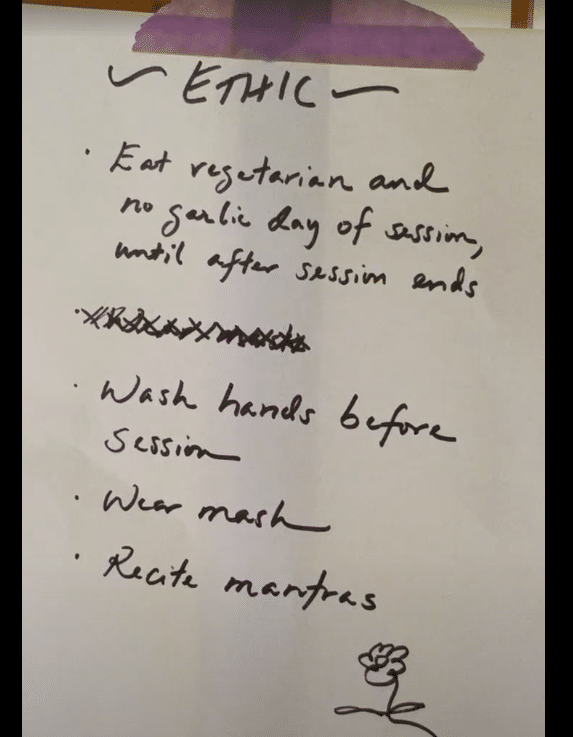 ~ ETHIC ~
· Eat vegetarian and
no garlic day of session,
until after session ends
· Wash hands before
session
· Wear mask
· Recite mantras